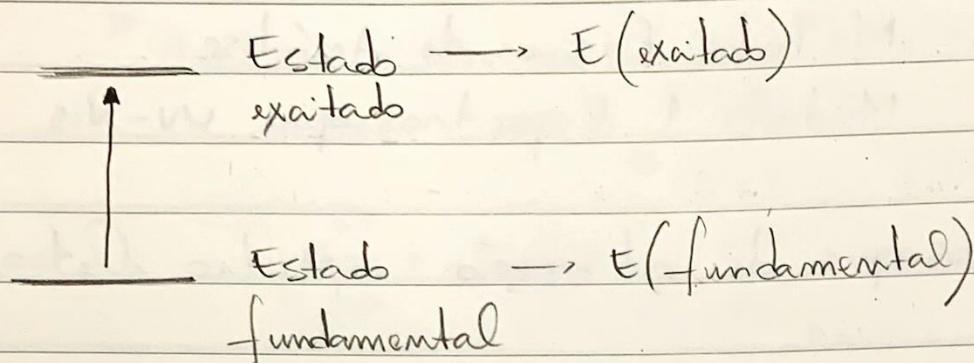 Estado → E (exaitado)
exaitado
Estado → E (fundamental)
fundamental